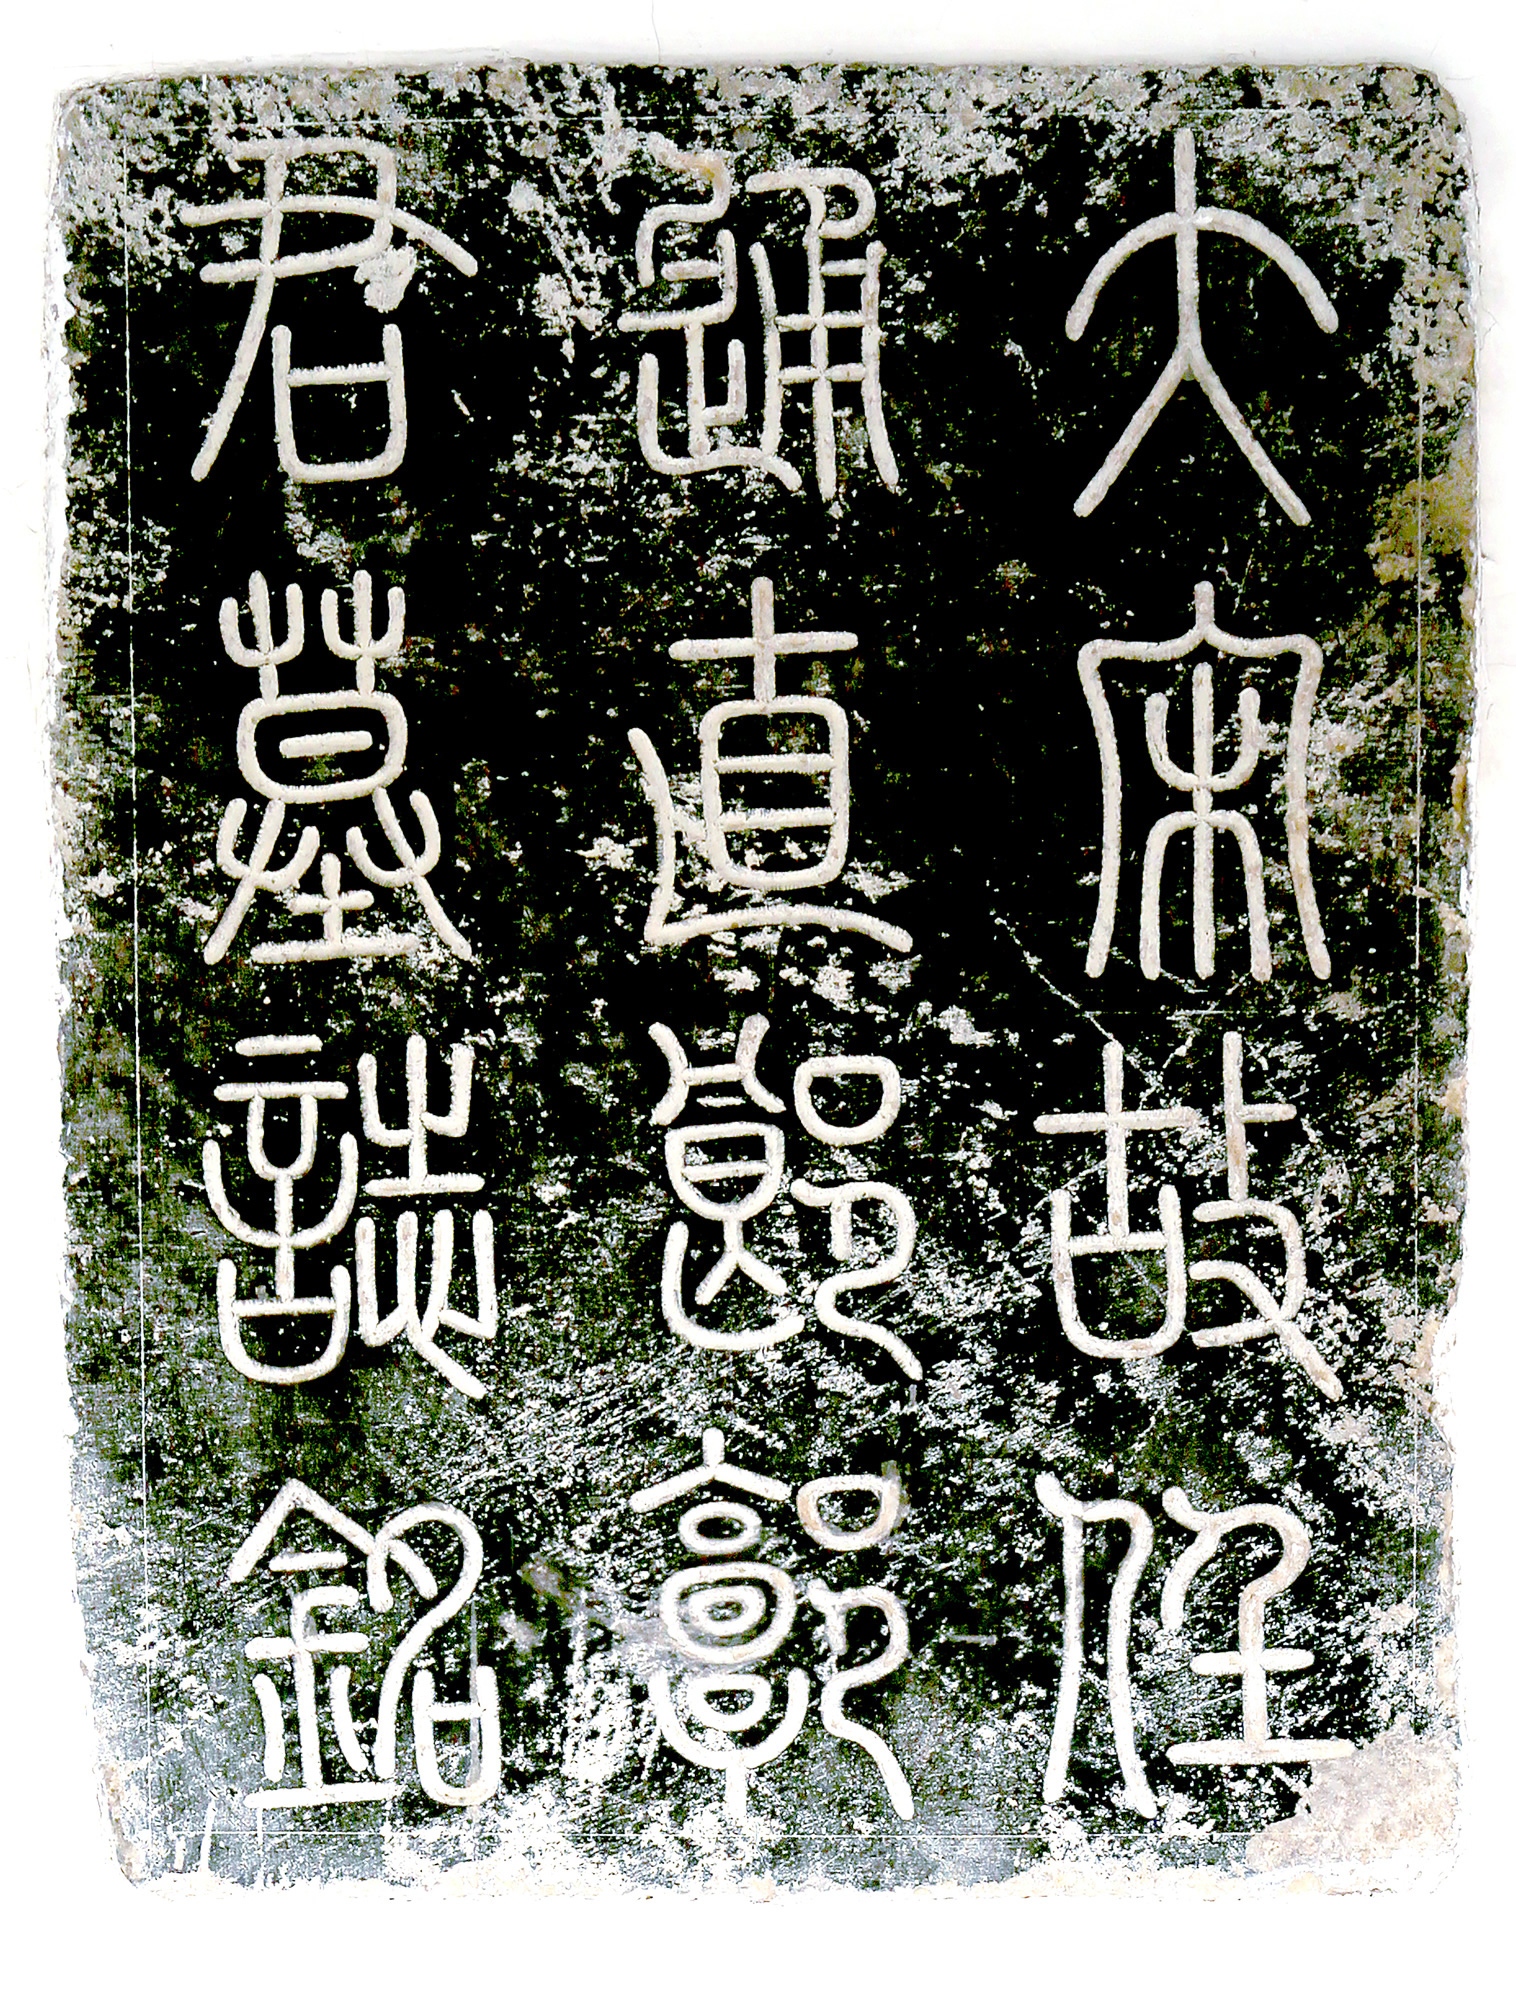 大宋故任
通直郎郭
君墓誌銘